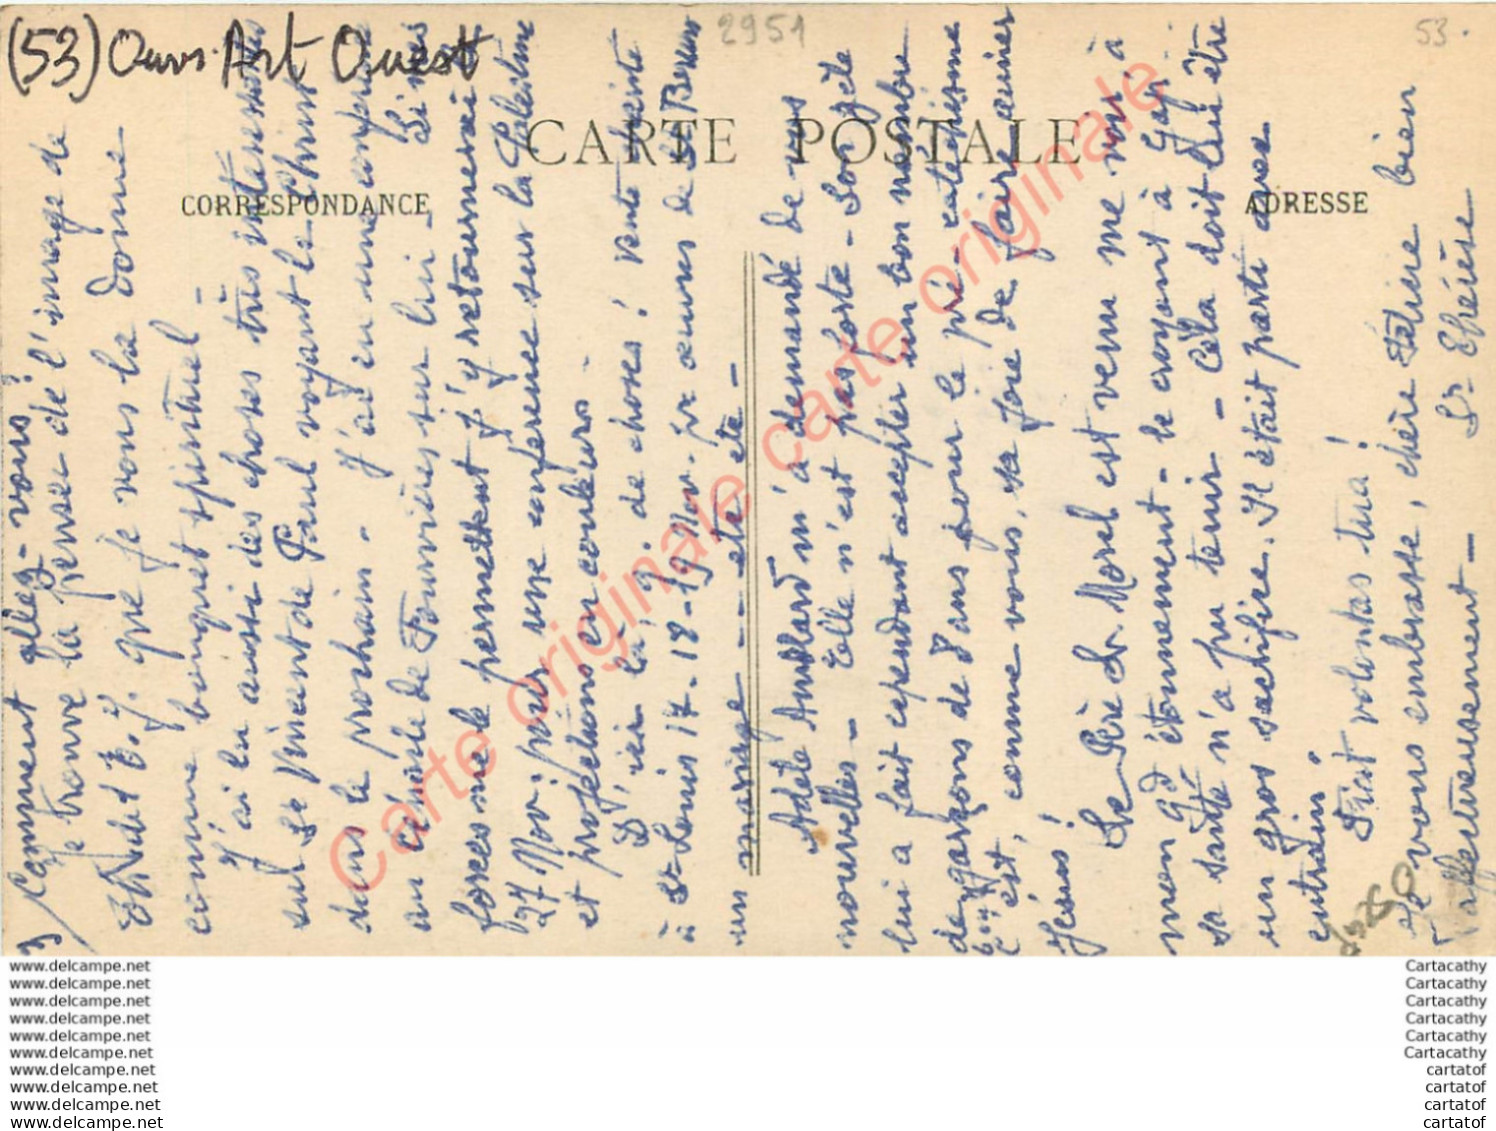 (53) Ouvr. Art Ouest
2951
53.
CARTE POSTALE
CORRESPONDANCE
ADRESSE
3/ Comment allez-vous?
Je trouve la pensée de l'image de
que je vous la donne
comme bouquet spirituel -
J'ai lu aussi des choses très intéressantes
sur St Vincent de Paul voyant le Christ
dans le prochain. J'ai eu une conférence
au de Fourvières sur lui - Si mes
forces me le permettent j'y retournerai le
27 Nov. pour une conférence sur la Palestine
et projections en couleurs.
D'ici là, q. de choses! vente
à St Louis 17-18-19 Nov. pr œuvres de
un mariage - - etc etc -
Adèle m'a demandé de vos
nouvelles - Elle n'est pas forte - Son zèle
lui a fait cependant accepter un bon nombre
de garçons de 8 ans pour le pré-catéchisme
C'est, comme vous, sa joie de faire aimer
Jésus!
Le Père St. Morel est venu me voir, à
mon gd étonnement - le croyant à Gap...
sa santé n'a pu tenir - Cela doit lui être
un gros sacrifice. Il était parti avec
entrain.
Fiat voluntas tua!
Je vous embrasse, chère bien
affectueusement -
Sr Thérèse
Carte originale Carte originale Carte originale
www.delcampe.net
www.delcampe.net
www.delcampe.net
www.delcampe.net
www.delcampe.net
www.delcampe.net
www.delcampe.net
www.delcampe.net
www.delcampe.net
www.delcampe.net
Cartacathy
Cartacathy
Cartacathy
Cartacathy
Cartacathy
Cartacathy
cartatof
cartatof
cartatof
cartatof